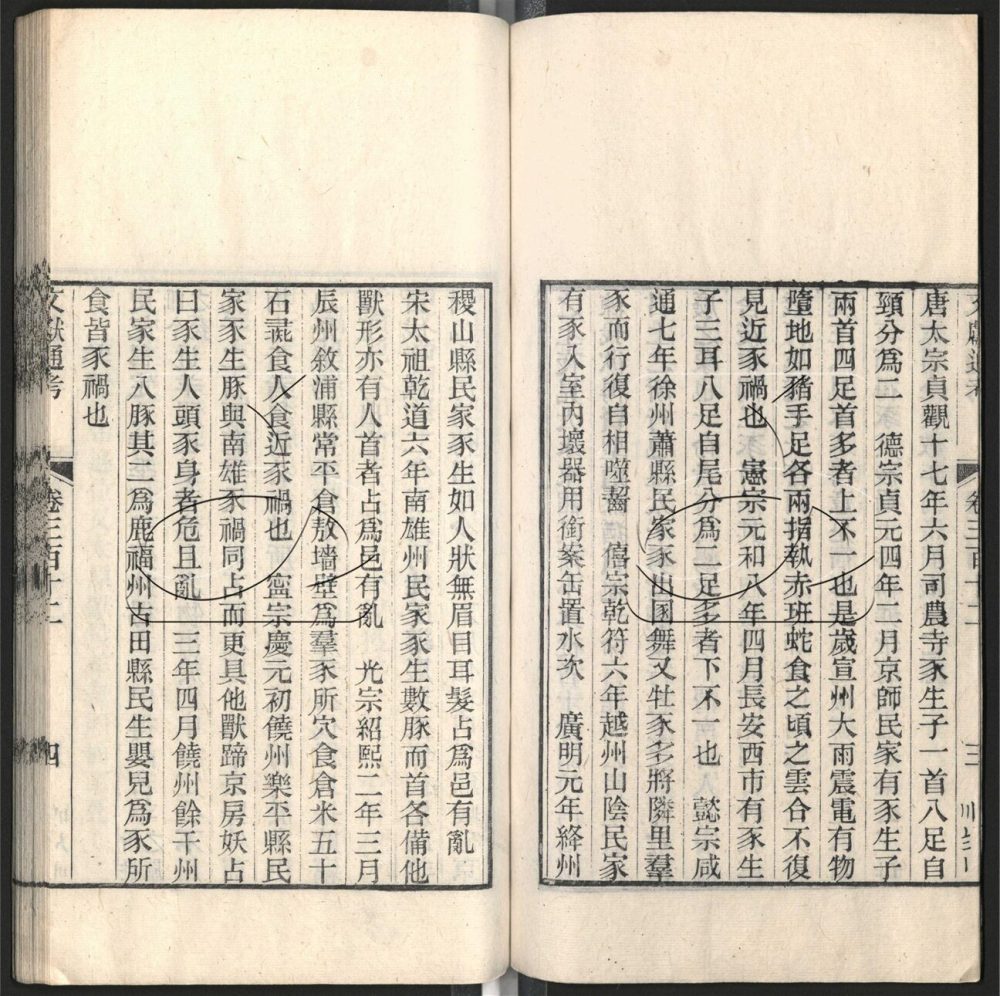 唐太宗貞觀十七年六月司農寺豕生子一首八足自
頸分爲二 德宗貞元四年二月京師民家有豕生子
兩首四足首多者上不一也是歲宣州大雨震電有物
墮地如豬手足各兩指執赤班蛇食之頃之雲合不復
見近豕禍也 憲宗元和八年四月長安西市有豕生
子三耳八足自尾分爲二足多者下不一也 懿宗咸
通七年徐州蕭縣民家豕出圂舞又牡豕多將隣里羣
豕而行復自相噬齧 僖宗乾符六年越州山陰民家
有豕入室內壞器用銜案缶置水次 廣明元年絳州
稷山縣民家豕生如人狀無眉目耳髮占爲邑有亂
宋太祖乾道六年南雄州民家豕生數豚而首各備他
獸形亦有人首者占爲邑有亂 光宗紹熙二年三月
辰州敘浦縣常平倉敖墻壁爲羣豕所穴食倉米五十
石彘食人食近豕禍也 寧宗慶元初饒州樂平縣民
家豕生豚與南雄豕禍同占而更具他獸蹄京房妖占
曰豕生人頭豕身者危且亂 三年四月饒州餘干州
民家生八豚其二爲鹿福州古田縣民生嬰兒爲豕所
食皆豕禍也
文獻通考 卷三百十二 四